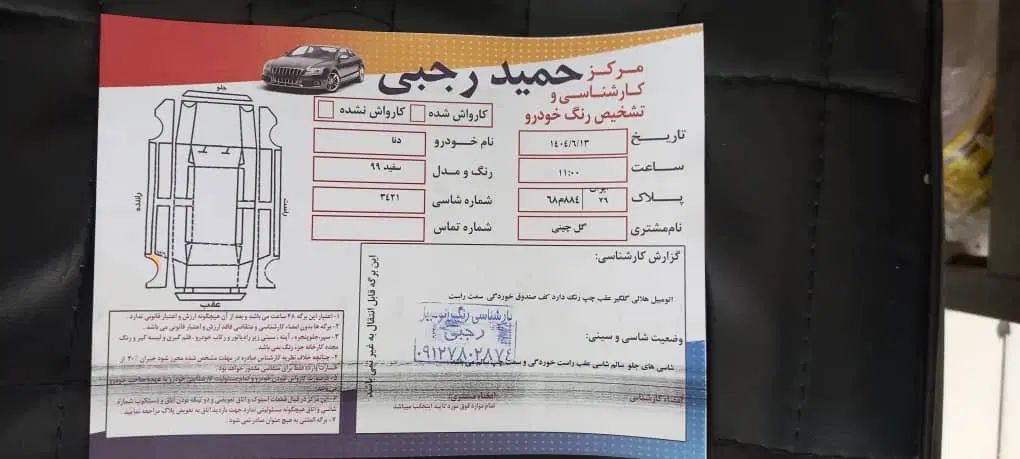 مرکز
کارشناسی و
تشخیص رنگ خودرو
حمید رجبی
کارواش شده
کارواش نشده
تاریخ
۱۴۰۴/۶/۱۳
نام خودرو
دنا
ساعت
۱۱:۰۰
رنگ و مدل
سفید ۹۹
پلاک
ایران
۷۶
۸۸۴م۶۸
شماره شاسی
۳۴۲۱
نام مشتری
گل چینی
شماره تماس
جلو
راننده
عقب
گزارش کارشناسی:
اتومبیل هلالی گلگیر عقب چپ رنگ دارد کف صندوق خوردگی سمت راست
وضعیت شاسی و سینی:
شاسی های جلو سالم شاسی عقب راست خوردگی و سمت چپ سالم می
کارشناسی رنگ اتومبیل
رجبی
۰۹۱۲۷۸۰۲۸۷۴
امضاء کارشناسی
(امضاء مشتری)
تمام موارد فوق مورد تایید اینجانب میباشد
این برگه قابل انتقال به غیر نمی باشد
۱- اعتبار این برگه ۴۸ ساعت می باشد و بعد از آن هیچگونه ارزش و اعتبار قانونی ندارد.
۲- برگه ها بدون امضاء کارشناسی و متقاضی فاقد ارزش و اعتبار قانونی می باشد.
۳- سپر، جلوپنجره، آینه، سینی زیر رادیاتور و رکاب خودرو، قلم گیری و لیسه گیر و رنگ
مجدد کارخانه جزء رنگ نمی باشد
۴- چنانچه خلاف نظریه کارشناس صادره در مهلت مشخص شده محرز شود جبران ۲۰٪ از
خسارت وارده فقط برای متقاضی مقدور خواهد بود.
شاسی و اتاق هیچگونه مسئولیتی ندارد جهت بازدید اتاق به تعویض پلاک مراجعه نمایید.
۷- برگه المثنی به هیچ عنوان صادر نمی شود.